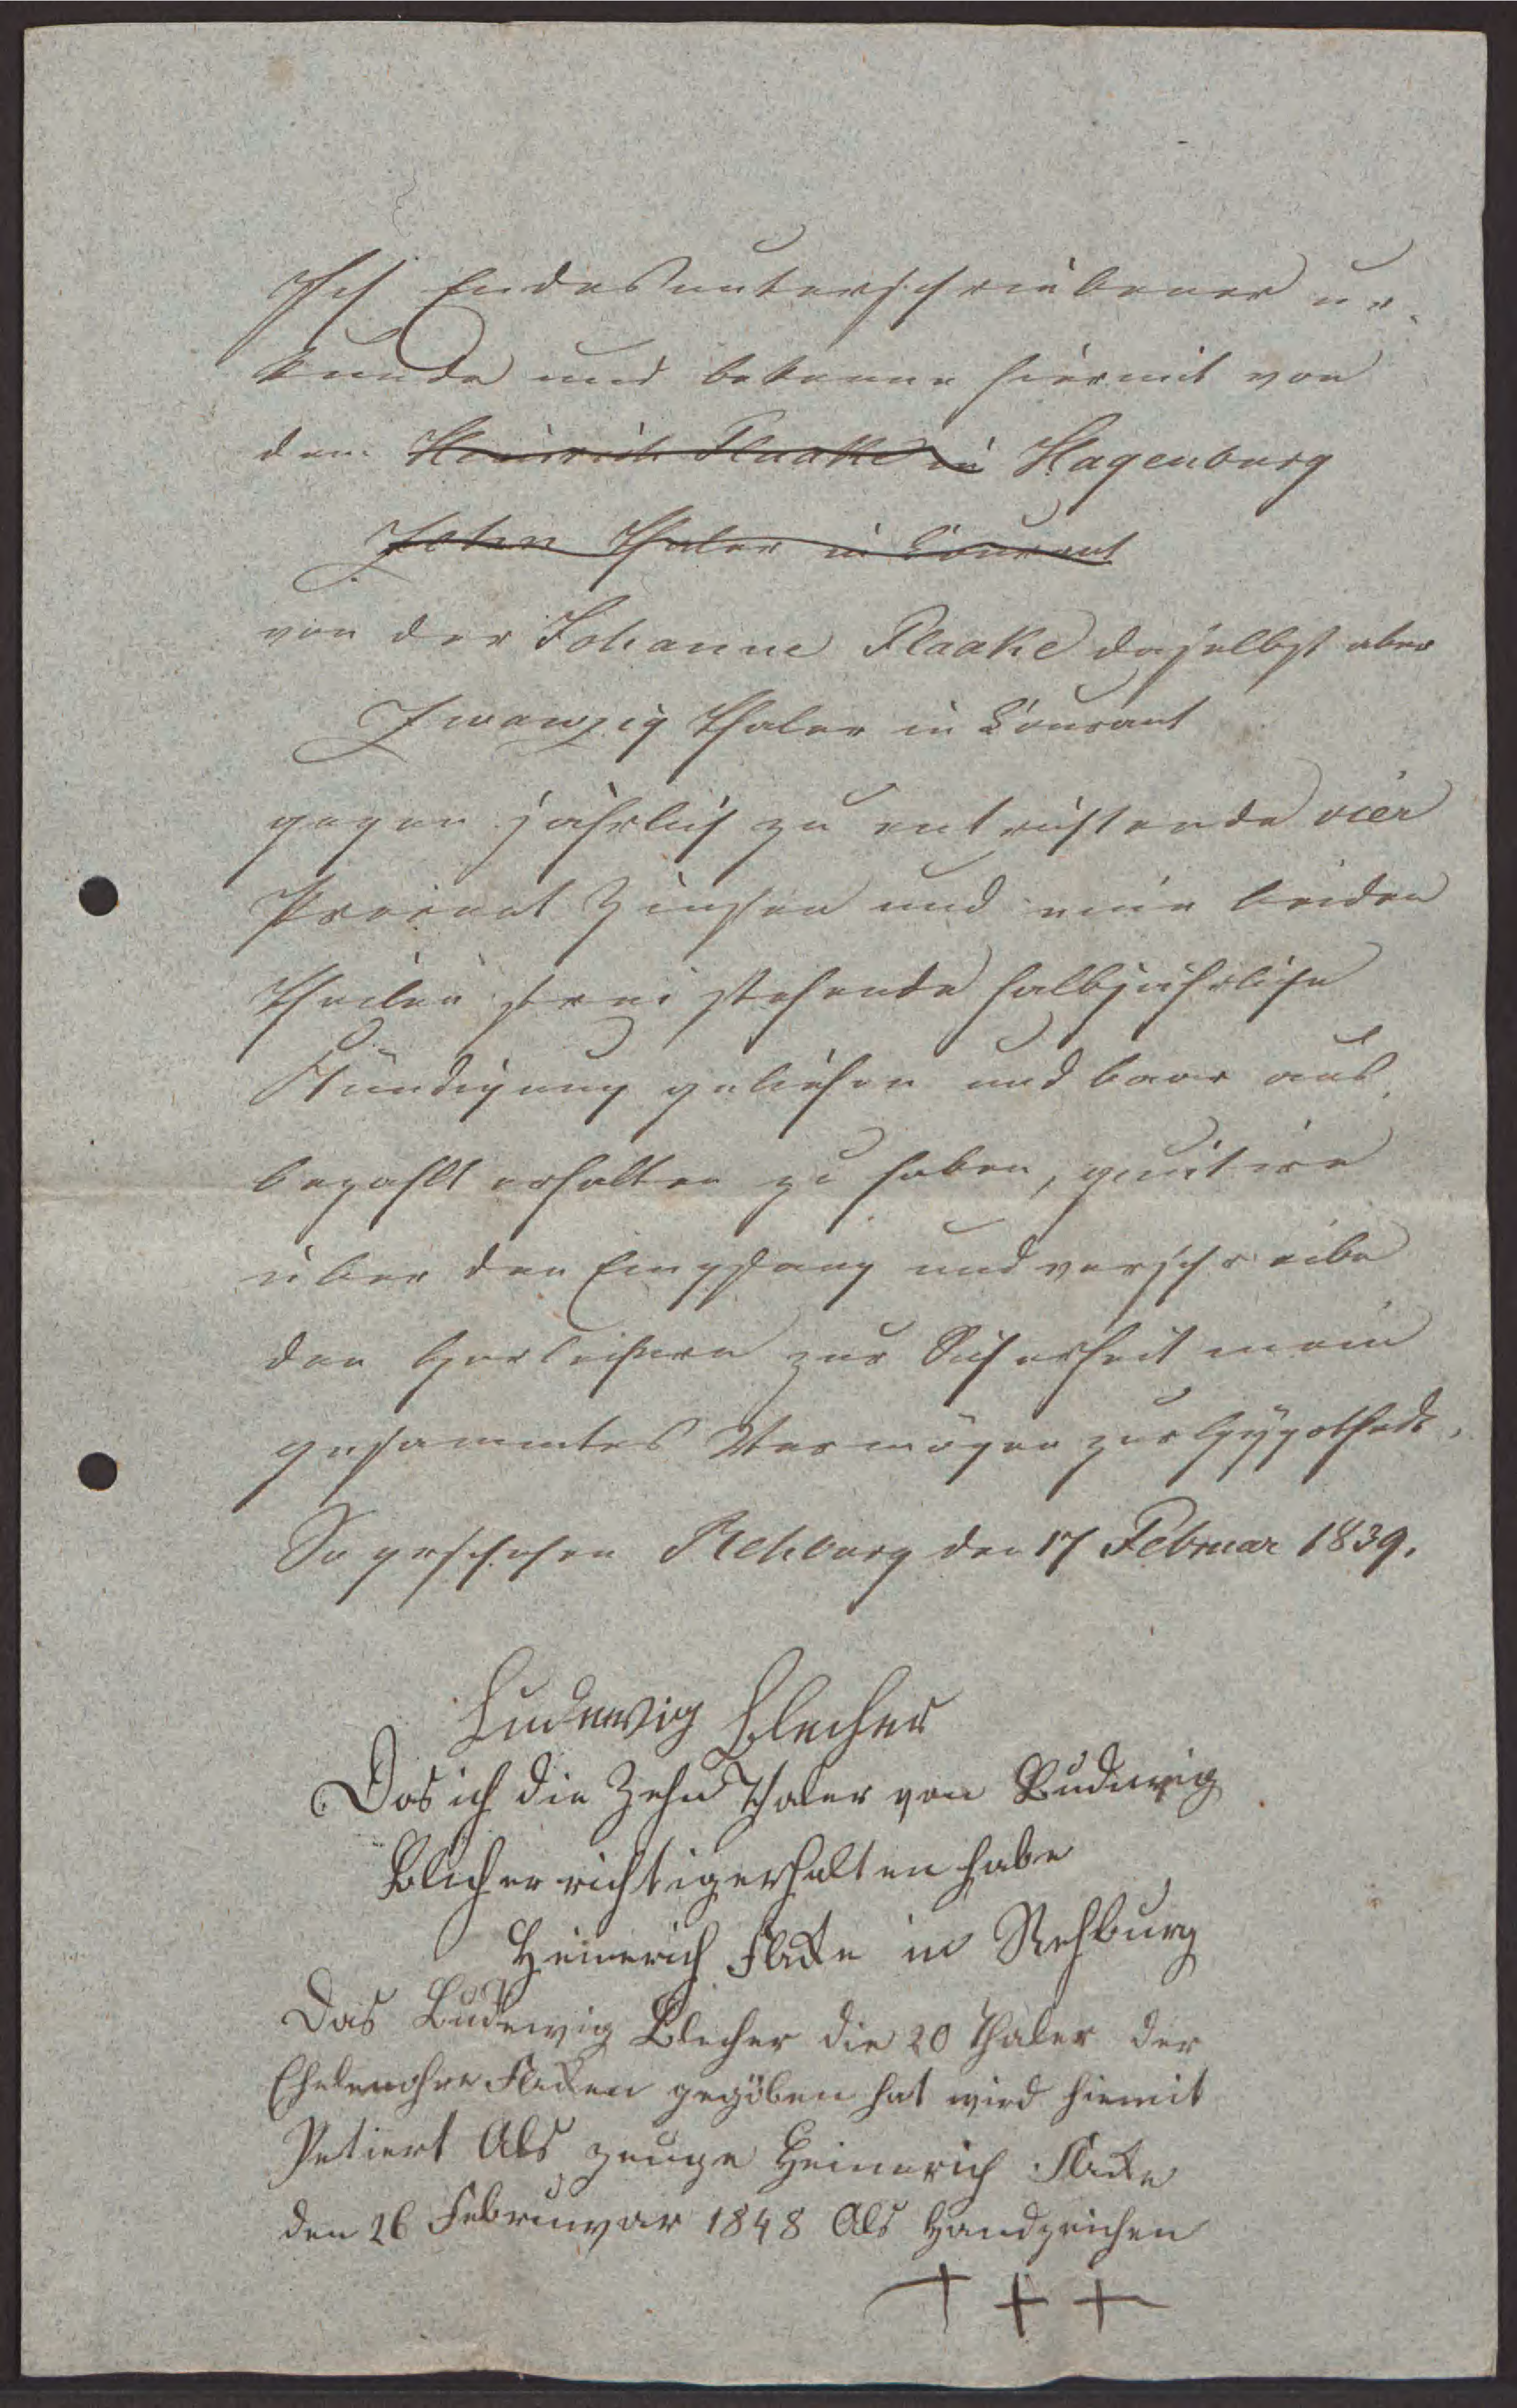 Ich Endesunterschriebener ur-
kunde und bekenne hiermit von
dem Heinrich Flaake in Hagenburg
Zehn Thaler in Courant
von der Johanne Flaake daselbst aber
Zwanzig Thaler in Courant
gegen jährlich zu entrichtende vier
Procent Zinsen und eine beiden
Theilen frei stehende halbjährliche
Kündigung geliehen und baar aus-
bezahlt erhalten zu haben, quitire
über den Empfang und verschreibe
den Herleihern zur Sicherheit mein
gesammtes Vermögen zur Hypothek.
So geschehen Rehburg den 17 Februar 1839.
Ludewig Blecher
Das ich die Zehn Thaler von Ludewig
Blecher richtig erhalten habe
Heinerich Flake in Rehburg
Das Ludewig Blecher die 20 Thaler der
Flaken gegöben hat wird hiemit
Als zeuge Heinerich Flake
den 26 Februwar 1848 Als Handzeichen
+ + +